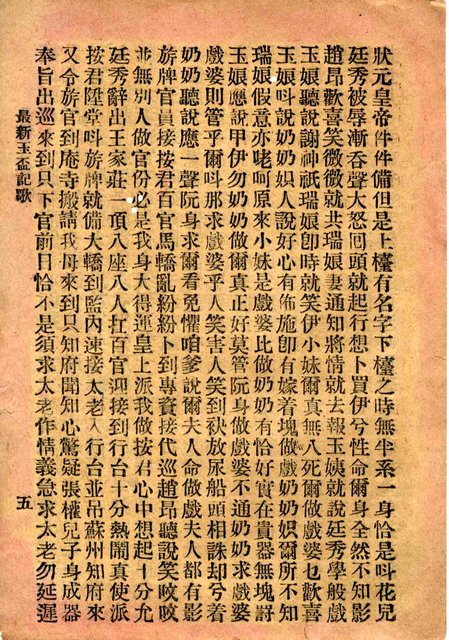 狀元皇帝件件備但是上檯有名字下檯之時無半系一身恰是呌花兒
廷秀被辱漸吞聲大怒囘頭就起行想卜買伊兮性命爾身全然不知影
趙昂歡喜笑微微就共瑞娘妻通知將情就去報玉姨就說廷秀學般戲
玉娘聽說謝神祇瑞娘卽時就笑伊小妹爾真無八死爾做戲婆乜歡喜
玉娘呌說奶奶娯人說好心有佈施卽有嫁着塊做戲奶奶娯爾所不知
瑞娘假意亦咾呵原來小妹是戲婆比做奶奶有恰好實在貴器無塊討
玉娘應說甲伊勿奶奶做爾真正好莫管阮身做戲婆不通奶奶求戲
戲婆則管乎爾呌那求戲婆乎人笑害人笑到袂放尿船頭相誅却兮着
奶奶聽說應一聲阮身求爾看免懼咱爹說爾夫人命做戲夫人都有影
旂牌官員接按君百官馬轎亂紛紛卜到專資接代巡趙昂聽說笑吺吺
並無別人做官份必是我身大得運皇上派我做按君心中想起十分允
廷秀辭出王家莊一項八座八人扛百官迎接到行台十分熱鬧真使派
按君陞堂呌旂牌就備大轎到監內速接太老入行台並吊蘇州知府來
又令旂官到庵寺搬請我母來到只知府聞知心驚疑張權兒子身成器
奉旨出巡來到只下官前日恰不是須求太老作情義急求太老勿延遲
最新玉盃記歌
五